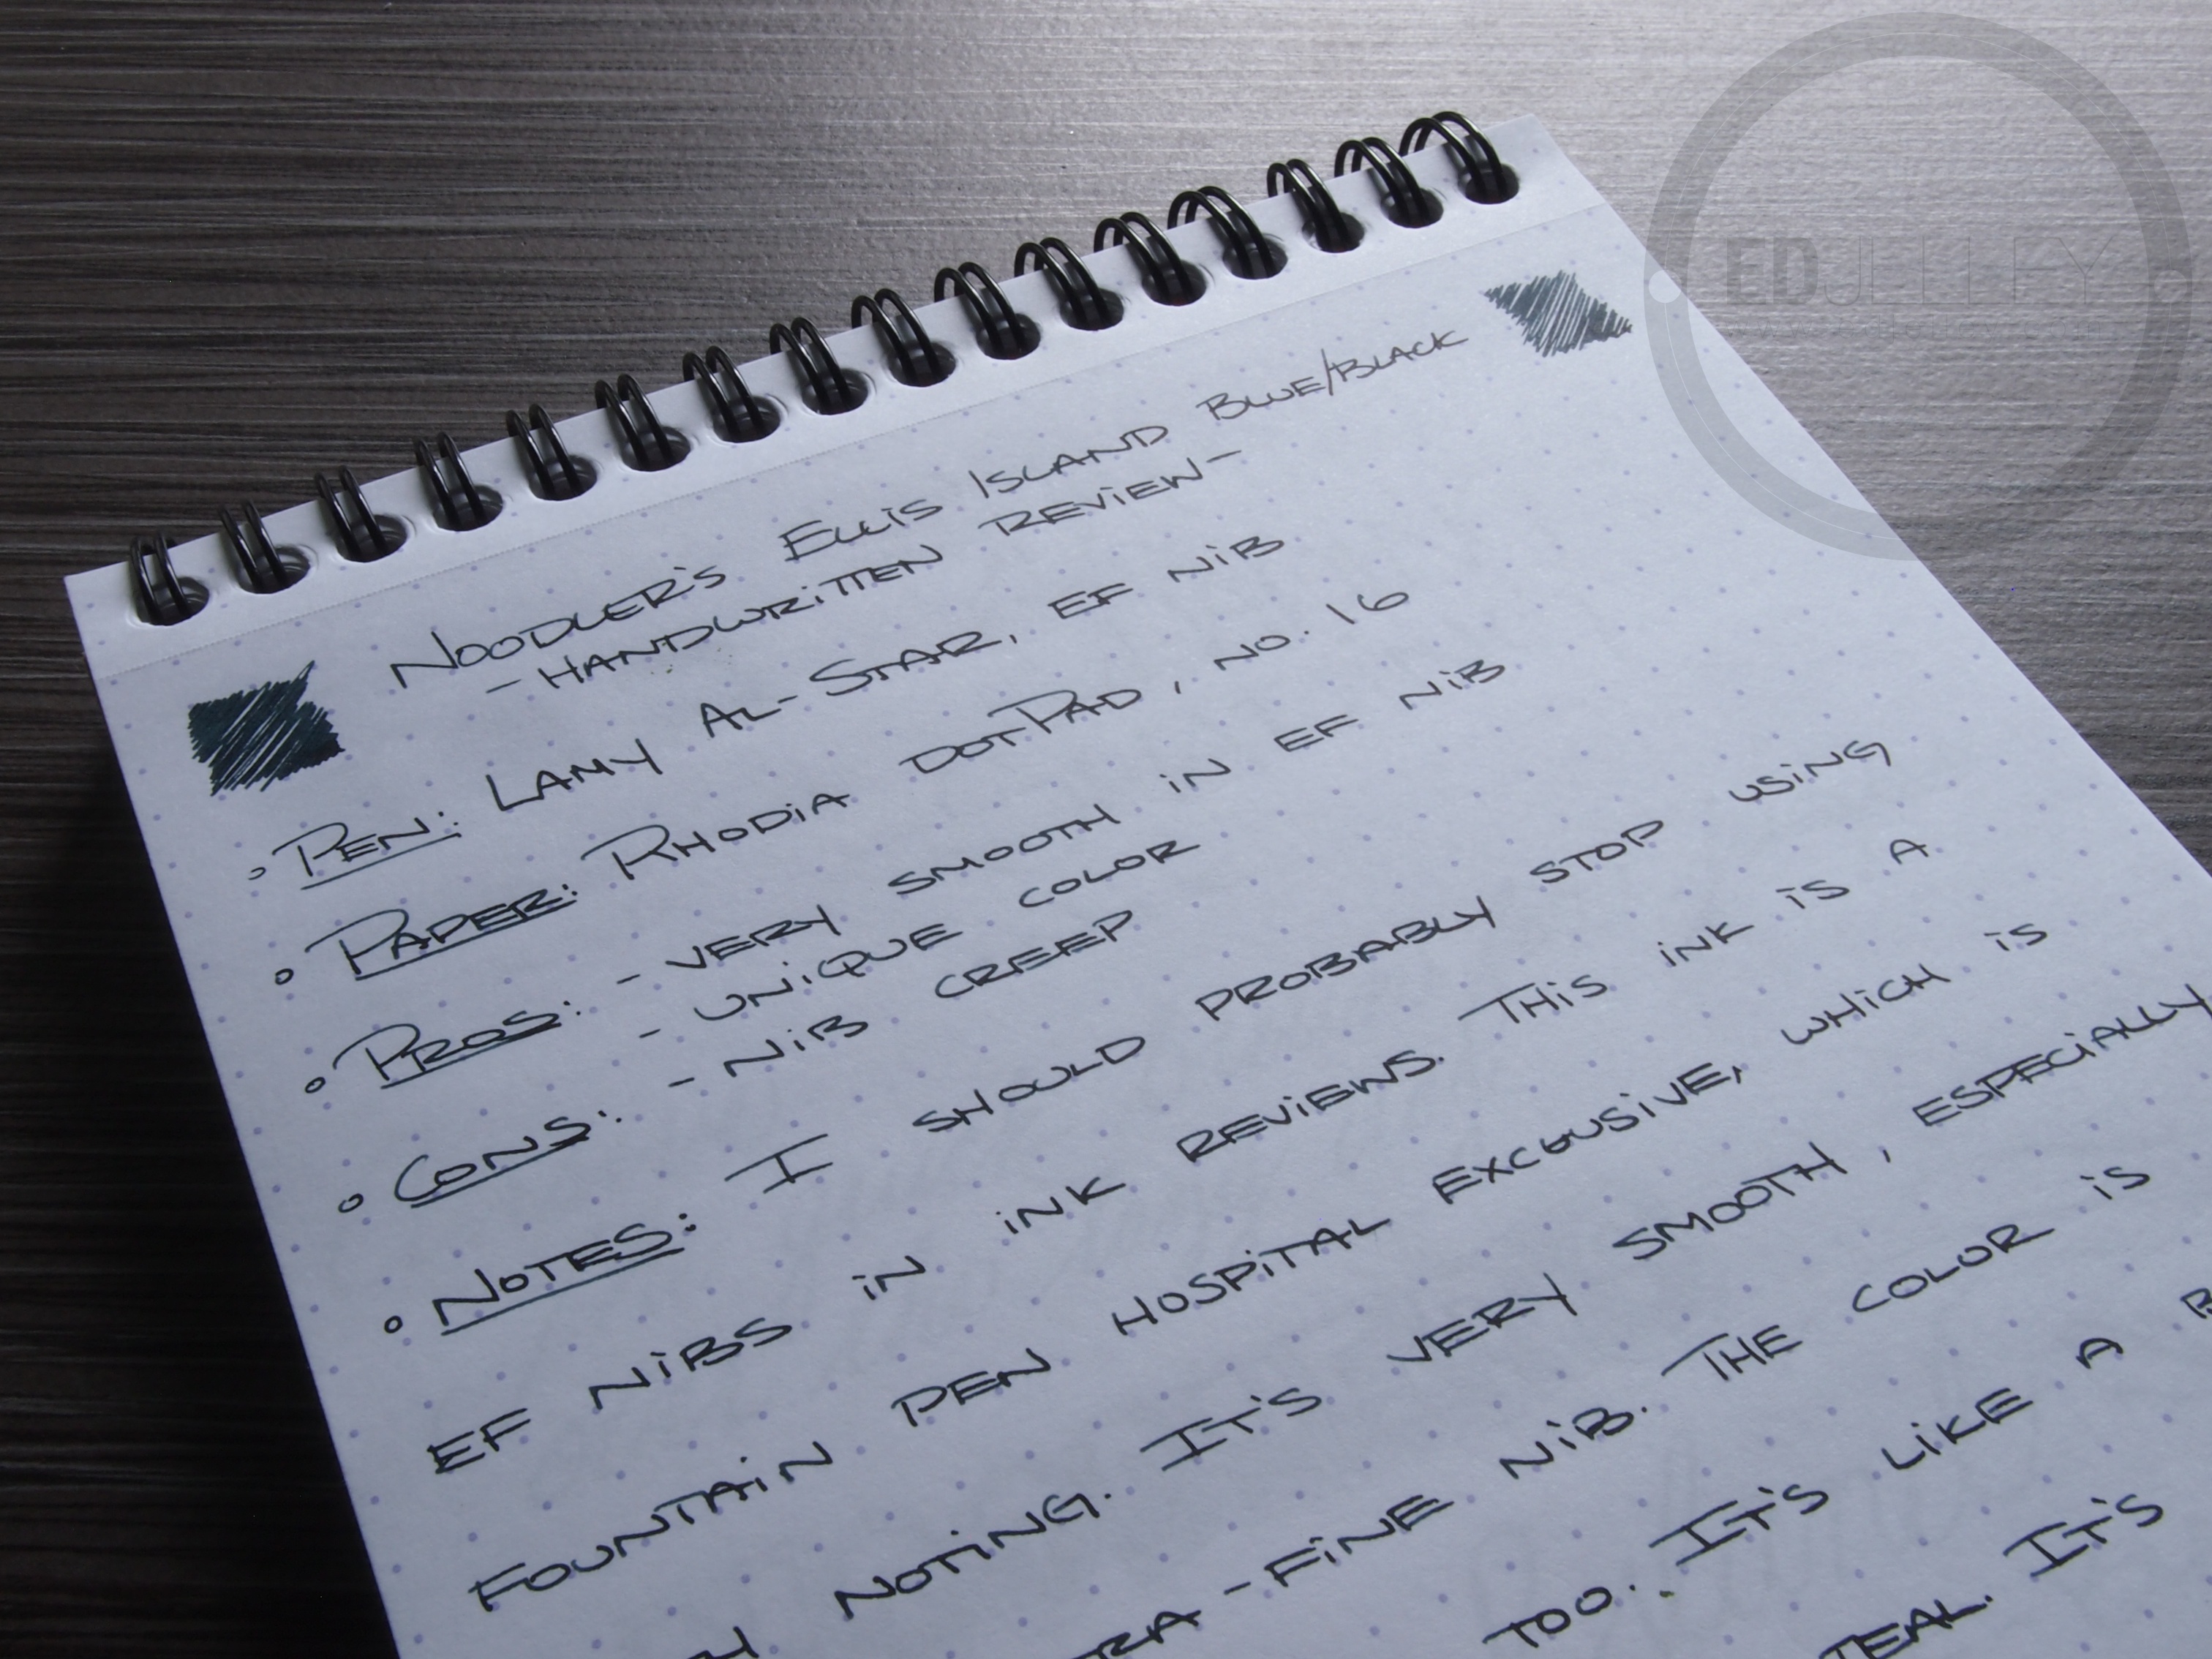 EDJELLEY
Noodler's Ellis Island Blue/Black
- Handwritten Review -
Pen: Lamy Al-Star, EF Nib
Paper: Rhodia dotPad, No. 16
Pros: - Very smooth in EF nib
- Unique color
Cons: - Nib creep
Notes: I should probably stop using
EF nibs in ink reviews. This ink is a
Fountain Pen Hospital Exclusive, which is
noting. It's very smooth, especially
-fine nib. The color is
too. It's like a
teal. It's